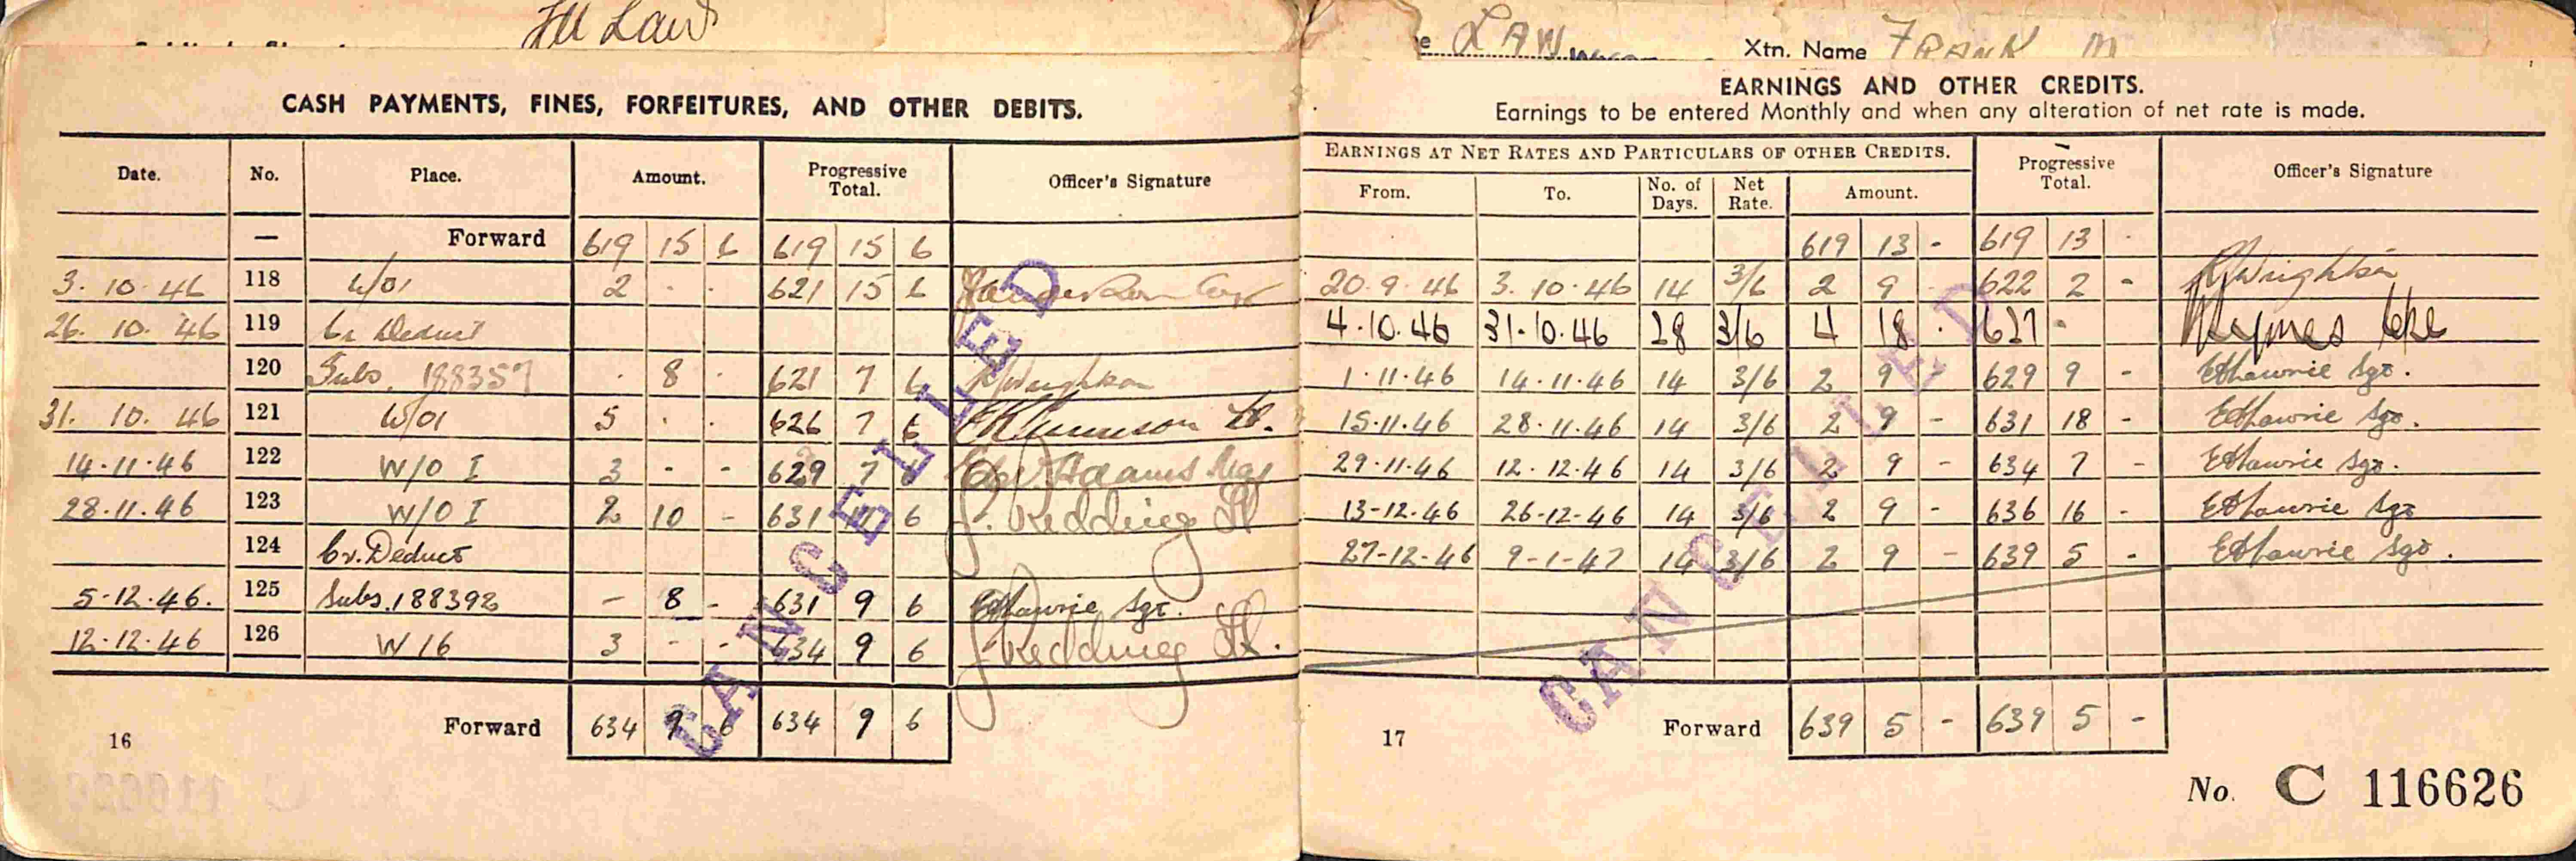 FM Law
CASH PAYMENTS, FINES, FORFEITURES, AND OTHER DEBITS.
Date. No. Place. Amount. Progressive Total. Officer's Signature
— Forward 619 15 6 619 15 6
3. 10. 46 118 W/01 2 . . 621 15 6
26. 10. 46 119 Cr Deduct
120 Subs. 188357 . 8 . 621 7 6 Wrighton
31. 10. 46 121 W/01 5 . . 626 7 6
14.11.46 122 W/O I 3 - - 629 7 6 Adams
28.11.46 123 W/O I 2 10 - 631 6 J. Redding Lt
124 Cr. Deduct
5.12.46. 125 Subs. 188392 - 8 - 631 9 6 Lawrie Sgt.
12.12.46 126 W 16 3 - - 634 9 6 J. Redding Lt.
Forward 634 9 6 634 9 6
16
CANCELLED
e LAW Xtn. Name FRANK M
EARNINGS AND OTHER CREDITS.
Earnings to be entered Monthly and when any alteration of net rate is made.
EARNINGS AT NET RATES AND PARTICULARS OF OTHER CREDITS. Progressive Total. Officer's Signature
From. To. No. of Days. Net Rate. Amount.
619 13 - 619 13 -
20.9.46 3.10.46 14 3/6 2 9 622 2 - Wrighton
4.10.46 31.10.46 28 3/6 4 18 . 627 -
1.11.46 14.11.46 14 3/6 2 9 - 629 9 - Lawrie Sgt.
15.11.46 28.11.46 14 3/6 2 9 - 631 18 - Lawrie Sgt.
29.11.46 12.12.46 14 3/6 2 9 - 634 7 - Lawrie Sgt.
13-12-46 26-12-46 14 3/6 2 9 - 636 16 - Lawrie Sgt
27-12-46 9-1-47 14 3/6 2 9 - 639 5 - Lawrie Sgt.
Forward 639 5 - 639 5 -
17
CANCELLED
No. C 116626